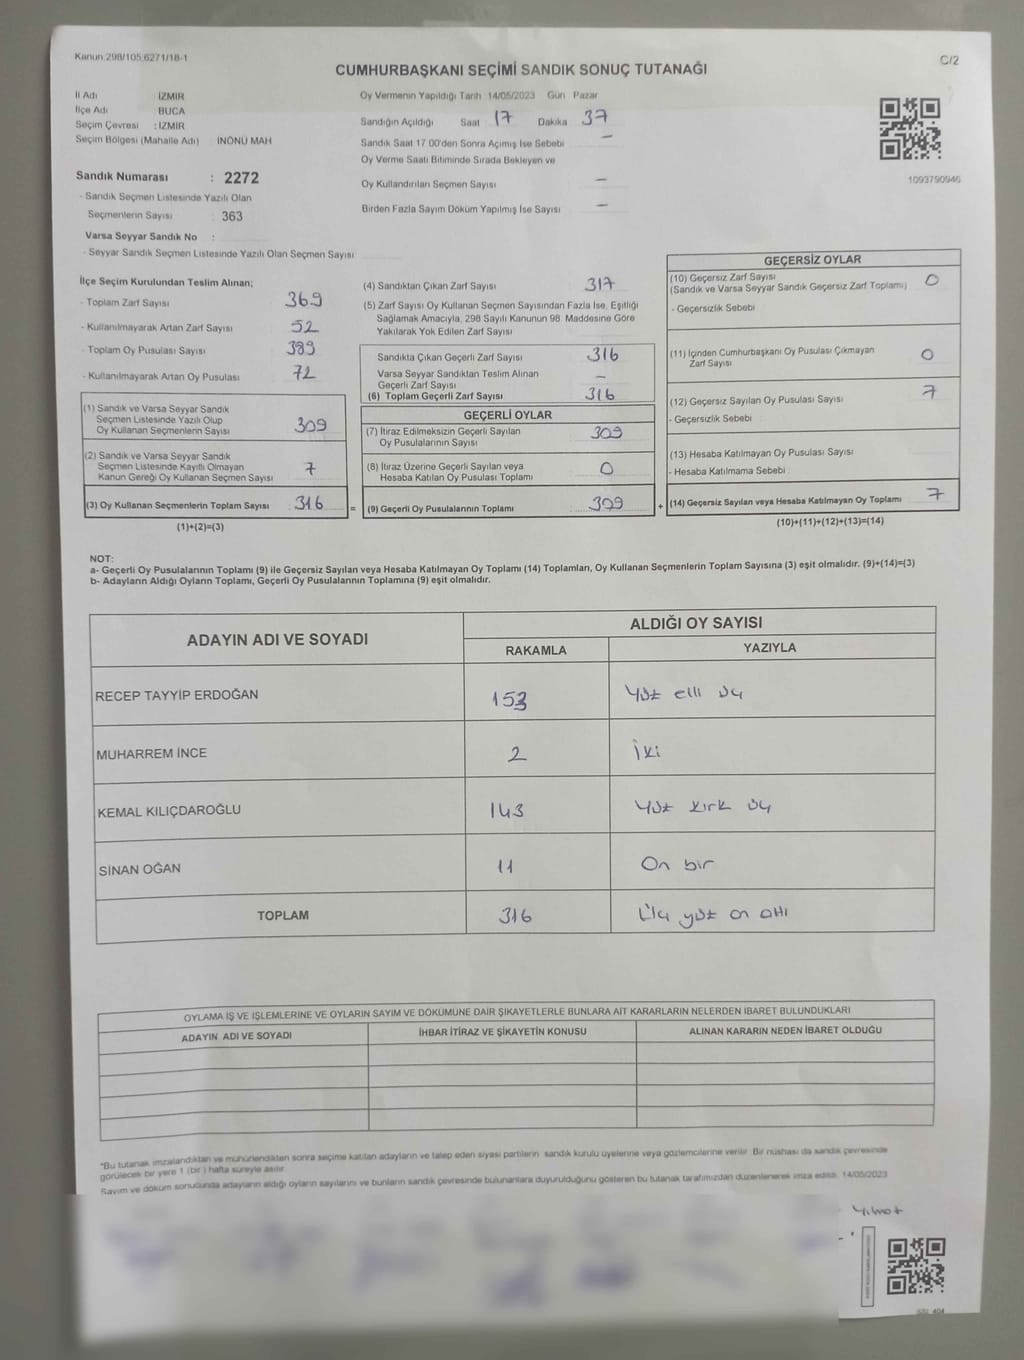 Kanun:298/105,6271/18-1
C/2
CUMHURBAŞKANI SEÇİMİ SANDIK SONUÇ TUTANAĞI
İl Adı İZMİR
İlçe Adı BUCA
Seçim Çevresi : İZMİR
Seçim Bölgesi (Mahalle Adı) İNÖNÜ MAH
Sandık Numarası : 2272
- Sandık Seçmen Listesinde Yazılı Olan
Seçmenlerin Sayısı : 363
Varsa Seyyar Sandık No :
- Seyyar Sandık Seçmen Listesinde Yazılı Olan Seçmen Sayısı
Oy Vermenin Yapıldığı Tarih :14/05/2023 Gün Pazar
Sandığın Açıldığı Saat 17 Dakika 37
Sandık Saat 17:00'den Sonra Açımış İse Sebebi —
Oy Verme Saati Bitiminde Sırada Bekleyen ve
Oy Kullandırılan Seçmen Sayısı —
Birden Fazla Sayım Döküm Yapılmış İse Sayısı —
1093790946
İlçe Seçim Kurulundan Teslim Alınan;
- Toplam Zarf Sayısı 369
- Kullanılmayarak Artan Zarf Sayısı 52
- Toplam Oy Pusulası Sayısı 389
- Kullanılmayarak Artan Oy Pusulası 72
(1) Sandık ve Varsa Seyyar Sandık
Seçmen Listesinde Yazılı Olup
Oy Kullanan Seçmenlerin Sayısı 309
(2) Sandık ve Varsa Seyyar Sandık
Seçmen Listesinde Kayıtlı Olmayan
Kanun Gereği Oy Kullanan Seçmen Sayısı 7
(3) Oy Kullanan Seçmenlerin Toplam Sayısı : 316 =
(1)+(2)=(3)
(4) Sandıktan Çıkan Zarf Sayısı 317
(5) Zarf Sayısı Oy Kullanan Seçmen Sayısından Fazla İse, Eşitliği
Sağlamak Amacıyla, 298 Sayılı Kanunun 98. Maddesine Göre
Yakılarak Yok Edilen Zarf Sayısı
Sandıkta Çıkan Geçerli Zarf Sayısı 316
Varsa Seyyar Sandıktan Teslim Alınan
Geçerli Zarf Sayısı —
(6) Toplam Geçerli Zarf Sayısı 316
GEÇERLİ OYLAR
(7) İtiraz Edilmeksizin Geçerli Sayılan
Oy Pusulalarının Sayısı 309
(8) İtiraz Üzerine Geçerli Sayılan veya
Hesaba Katılan Oy Pusulası Toplamı 0
(9) Geçerli Oy Pusulalarının Toplamı 309 +
GEÇERSİZ OYLAR
(10) Geçersiz Zarf Sayısı
(Sandık ve Varsa Seyyar Sandık Geçersiz Zarf Toplamı) 0
- Geçersizlik Sebebi
(11) İçinden Cumhurbaşkanı Oy Pusulası Çıkmayan
Zarf Sayısı 0
(12) Geçersiz Sayılan Oy Pusulası Sayısı 7
- Geçersizlik Sebebi
(13) Hesaba Katılmayan Oy Pusulası Sayısı
- Hesaba Katılmama Sebebi :
(14) Geçersiz Sayılan veya Hesaba Katılmayan Oy Toplamı 7
(10)+(11)+(12)+(13)=(14)
NOT:
a- Geçerli Oy Pusulalarının Toplamı (9) ile Geçersiz Sayılan veya Hesaba Katılmayan Oy Toplamı (14) Toplamları, Oy Kullanan Seçmenlerin Toplam Sayısına (3) eşit olmalıdır. (9)+(14)=(3)
b- Adayların Aldığı Oyların Toplamı, Geçerli Oy Pusulalarının Toplamına (9) eşit olmalıdır.
ADAYIN ADI VE SOYADI ALDIĞI OY SAYISI
RAKAMLA YAZIYLA
RECEP TAYYİP ERDOĞAN 153 Yüz elli üç
MUHARREM İNCE 2 İki
KEMAL KILIÇDAROĞLU 143 Yüz kırk üç
SİNAN OĞAN 11 On bir
TOPLAM 316 Üç yüz on altı
OYLAMA İŞ VE İŞLEMLERİNE VE OYLARIN SAYIM VE DÖKÜMÜNE DAİR ŞİKAYETLERLE BUNLARA AİT KARARLARIN NELERDEN İBARET BULUNDUKLARI
ADAYIN ADI VE SOYADI İHBAR İTİRAZ VE ŞİKAYETİN KONUSU ALINAN KARARIN NEDEN İBARET OLDUĞU
*Bu tutanak imzalandıktan ve mühürlendikten sonra seçime katılan adayların ve talep eden siyasi partilerin sandık kurulu üyelerine veya gözlemcilerine verilir. Bir nüshası da sandık çevresinde
görülecek bir yere 1 (bir ) hafta süreyle asılır.
Sayım ve döküm sonucunda adayların aldığı oyların sayılarını ve bunların sandık çevresinde bulunanlara duyurulduğunu gösteren bu tutanak tarafımızdan düzenlenerek imza edildi. 14/05/2023
Yılmaz